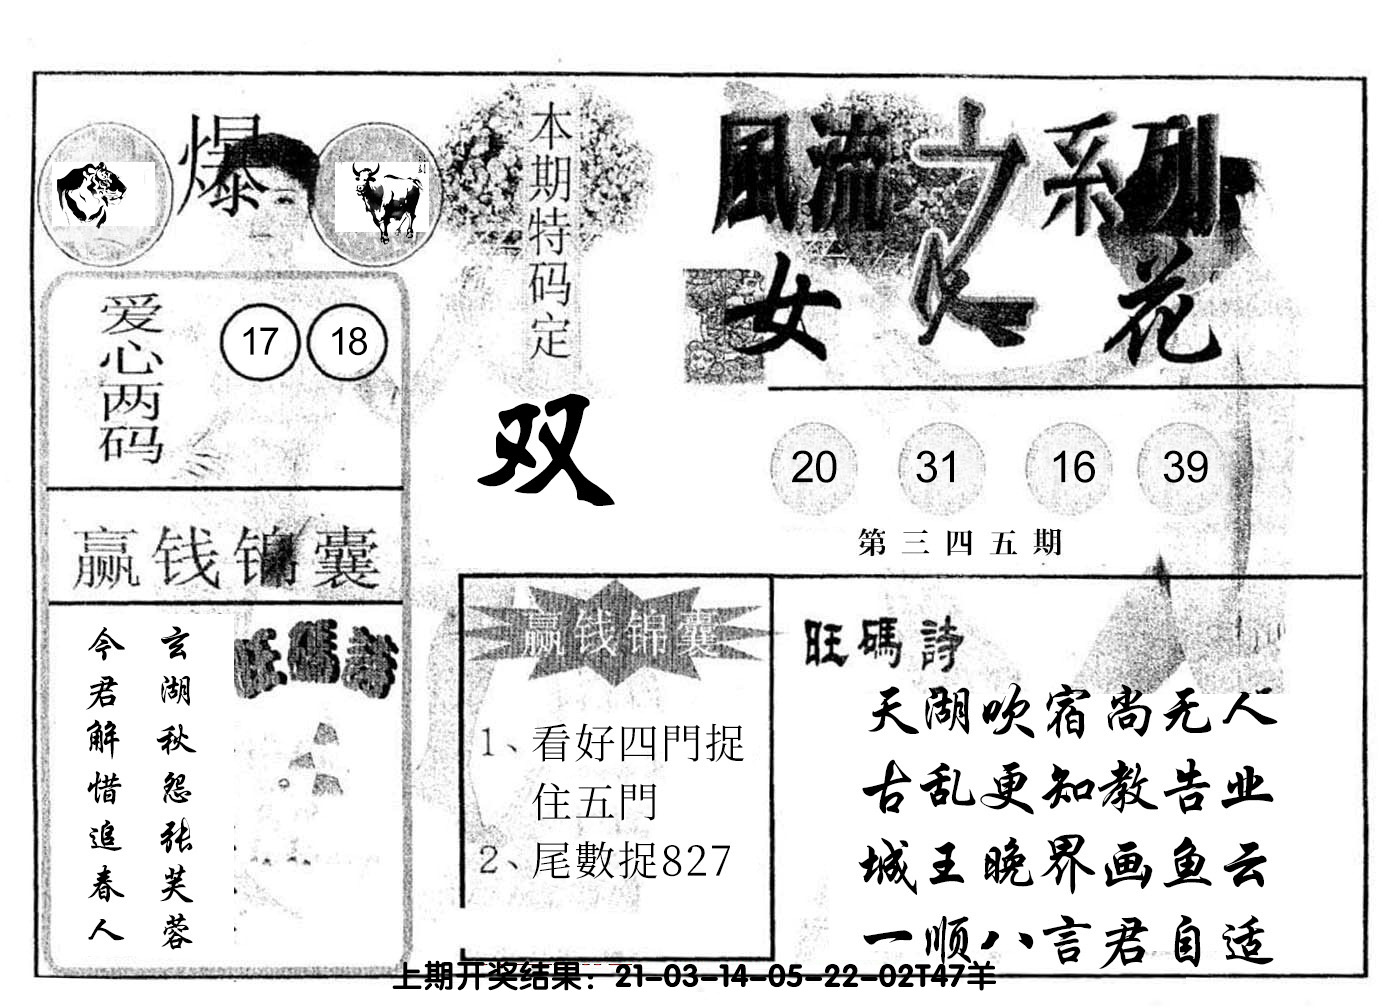 爆
本期特码定
双
風流之系列
女人花
爱心两码
17 18
20 31 16 39
第三四五期
赢钱锦囊
玄湖秋怨张芙蓉
今君解惜追春人
旺碼詩
赢钱锦囊
1、看好四門捉
住五門
2、尾數捉827
旺碼詩
天湖吹宿尚无人
古乱更知教告业
城王晚界画鱼云
一顺八言君自适
上期开奖结果：21-03-14-05-22-02T47羊